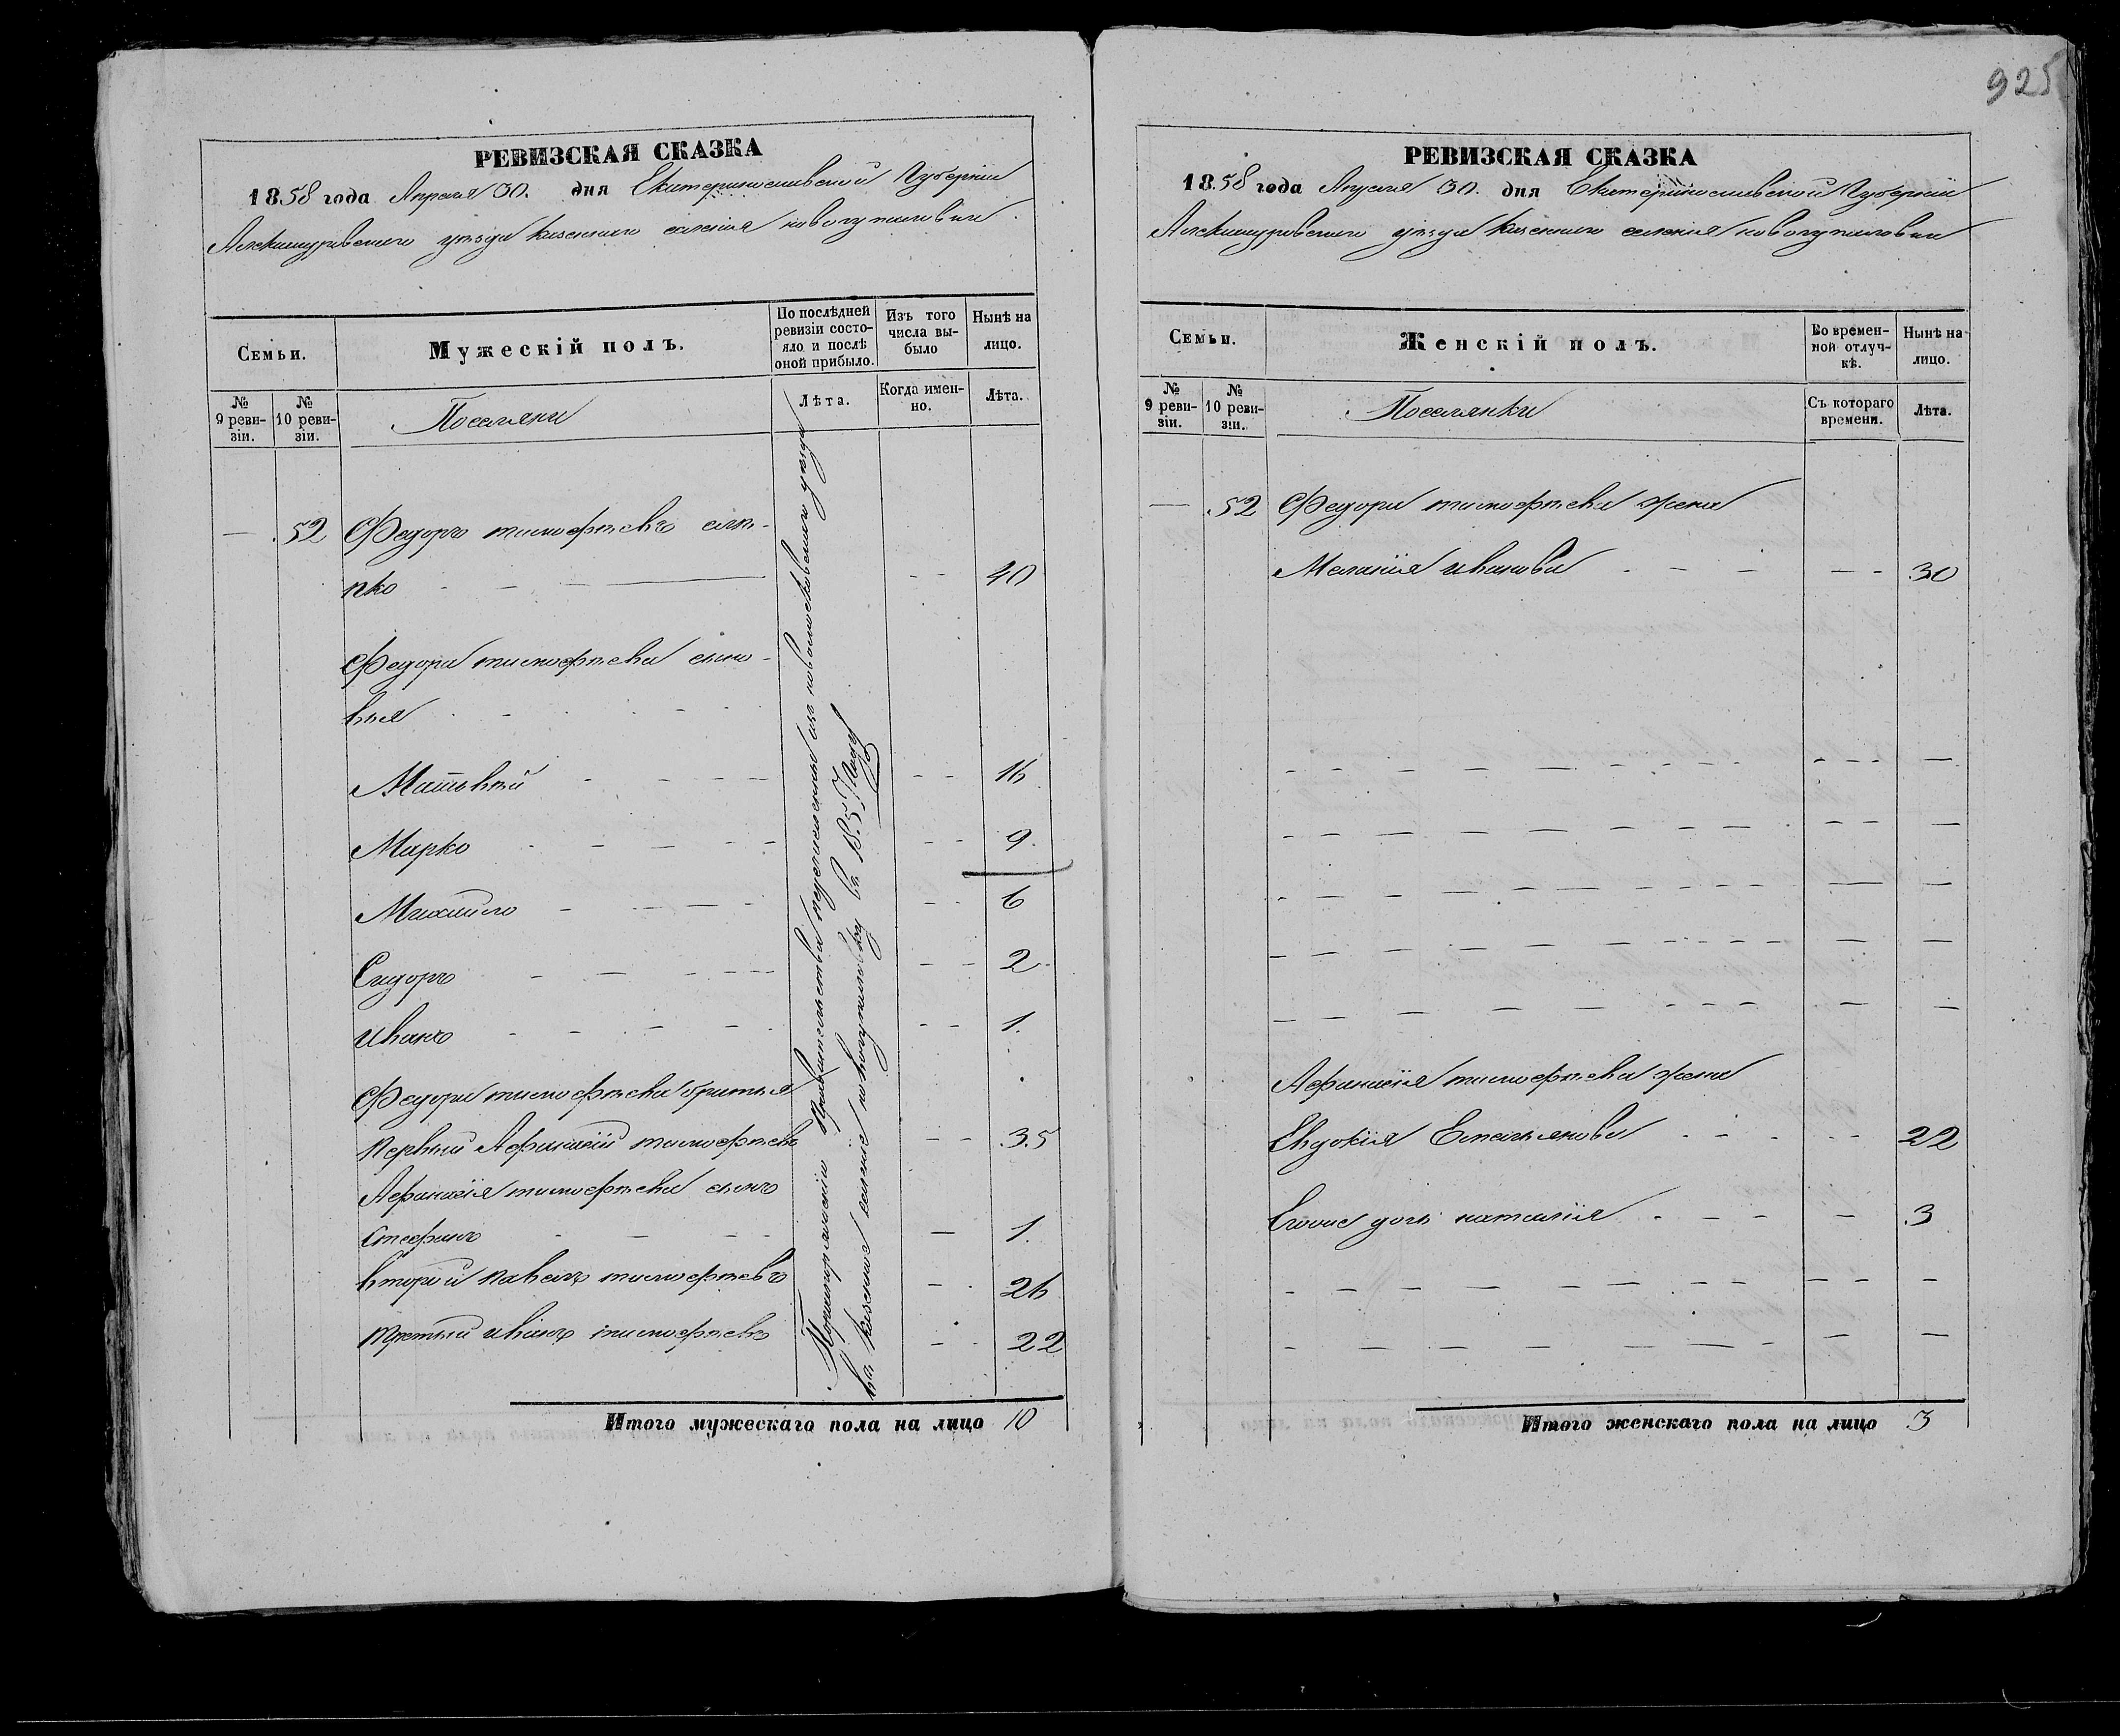 925
РЕВИЗСКАЯ СКАЗКА
1858 года Апреля 30. дня Екатеринославской Губернии
Александровского уѣзда казенного селения новогупаловки
Семьи.
Мужескій полъ.
По послѣдней ревизіи состояло и послѣ оной прибыло.
Изъ того числа выбыло
Нынѣ на лицо.
№ 9 ревизіи.
№ 10 ревизіи.
Поселяни
Лѣта.
Когда именно.
Лѣта.
— 52 Федоръ тимофѣевъ
пко - - - — - - 40
Федора тимофѣева сыно-
вья
Матвѣй - - - - - - 16
Марко - - - - - - - 9.
Михайло - - - - - - 6
Сидоръ - - - - - - - 2
Иванъ - - - - - - 1.
Федора тимофѣева братья
первый Афанасій тимофѣевъ - - 35
Афанасія тимофѣева сынъ
Стефанъ - - - - — 1.
вторый павелъ тимофѣевъ - - 26
третый иванъ тимофѣевъ - - 22
По распоряжению Правительства перечислены изъ новомосковского уѣзда
въ казенное селение новогупаловку въ
Итого мужескаго пола на лицо 10
РЕВИЗСКАЯ СКАЗКА
1858 года Апреля 30. дня Екатеринославской Губерніи
Александровского уѣзда казенного селения новогупаловки
Семьи.
Женскій полъ.
Во временной отлучкѣ.
Нынѣ на лицо.
№ 9 ревизіи.
№ 10 ревизіи.
Поселянки
Съ котораго времени.
Лѣта.
— 52 Федора тимофѣева жена
Меланія иванова - - - — - 30
Афанасія тимофѣева жена
Евдокія Емельянова - - - - - 22
Егоже дочь наталія - - - — 3
Итого женскаго пола на лицо 3